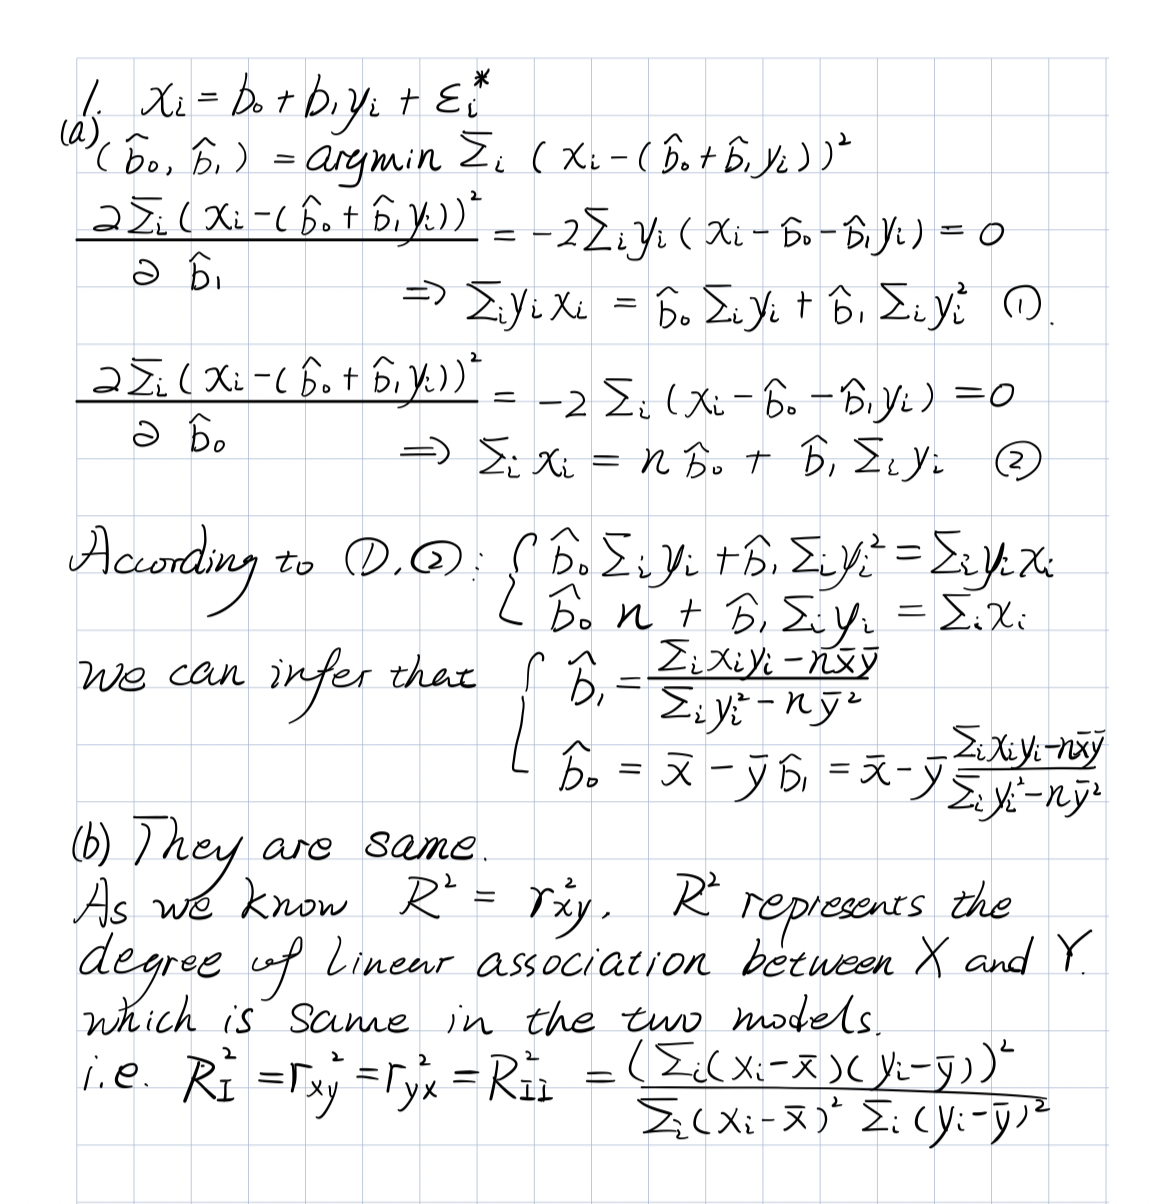 1. xᵢ = b₀ + b₁yᵢ + εᵢ*
(a) (b̂₀, b̂₁) = argmin Σᵢ (xᵢ-(b̂₀+b̂₁yᵢ))²
∂Σᵢ(xᵢ-(b̂₀+b̂₁yᵢ))² / ∂b̂₁ = -2Σᵢyᵢ(xᵢ-b̂₀-b̂₁yᵢ) = 0
=> Σᵢyᵢxᵢ = b̂₀Σᵢyᵢ + b̂₁Σᵢyᵢ² ①.
∂Σᵢ(xᵢ-(b̂₀+b̂₁yᵢ))² / ∂b̂₀ = -2Σᵢ(xᵢ-b̂₀-b̂₁yᵢ) = 0
=> Σᵢxᵢ = nb̂₀ + b̂₁Σᵢyᵢ ②
According to ①,②: { b̂₀Σᵢyᵢ + b̂₁Σᵢyᵢ² = Σᵢyᵢxᵢ
b̂₀n + b̂₁Σᵢyᵢ = Σᵢxᵢ
we can infer that { b̂₁ = (Σᵢxᵢyᵢ-nx̄ȳ) / (Σᵢyᵢ²-nȳ²)
b̂₀ = x̄ - ȳb̂₁ = x̄ - ȳ (Σᵢxᵢyᵢ-nx̄ȳ) / (Σᵢyᵢ²-nȳ²)
(b) They are same.
As we know R² = r²xy. R² represents the
degree of linear association between X and Y.
which is same in the two models.
i.e. R²_I = r²_xy = r²_yx = R²_II = (Σᵢ(xᵢ-x̄)(yᵢ-ȳ))² / Σᵢ(xᵢ-x̄)² Σᵢ(yᵢ-ȳ)²